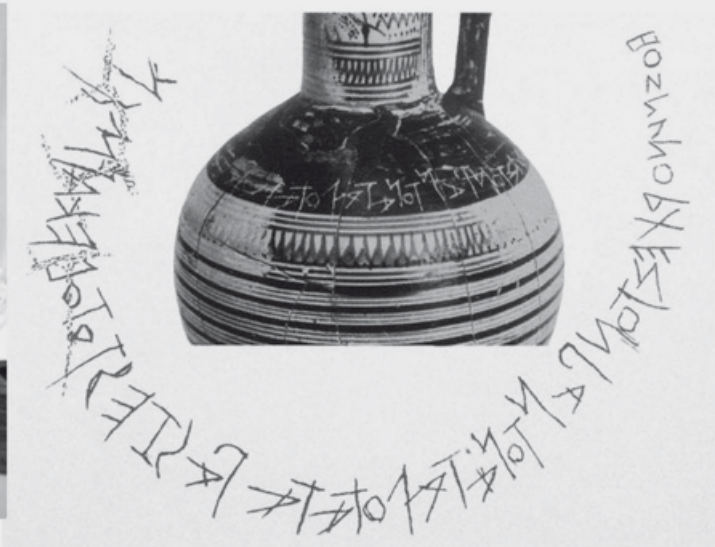 ΗΟΣΝΥΝΟΡΧΕΣΤΟΝΠΑΝΤΟΝΑΤΑΛΟΤΑΤΑΠΑΙΖΕΙΤΟΤΟΔΕ